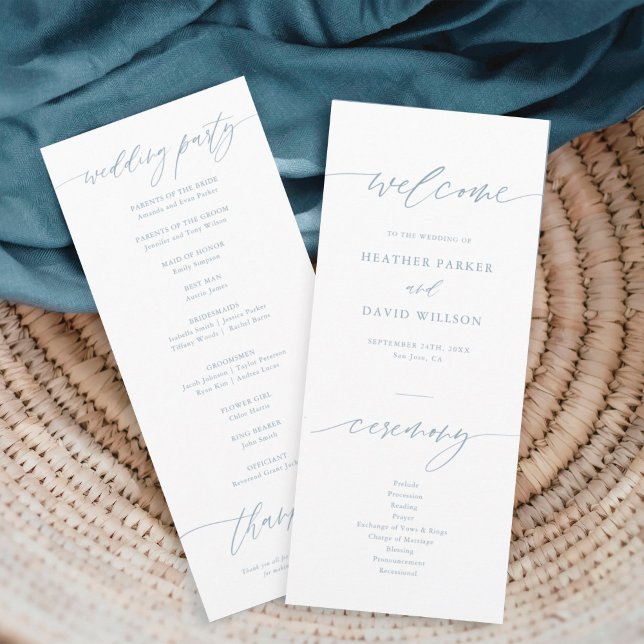 wedding party
PARENTS OF THE BRIDE
Amanda and Evan Parker
PARENTS OF THE GROOM
Jennifer and Tony Wilson
MAID OF HONOR
Emily Simpson
BEST MAN
Austin James
BRIDESMAIDS
Isabella Smith | Jessica Parker
Tiffany Woods | Rachel Barns
GROOMSMEN
Jacob Johnson | Taylor Peterson
Ryan Kim | Andrea Lucas
FLOWER GIRL
Chloe Harris
RING BEARER
John Smith
OFFICIANT
Reverend Grant Jack
than
Thank you all for
for making
welcome
TO THE WEDDING OF
HEATHER PARKER
and
DAVID WILLSON
SEPTEMBER 24TH, 20XX
San Jose, CA
ceremony
Prelude
Procession
Reading
Prayer
Exchange of Vows & Rings
Charge of Marriage
Blessing
Pronouncement
Recessional